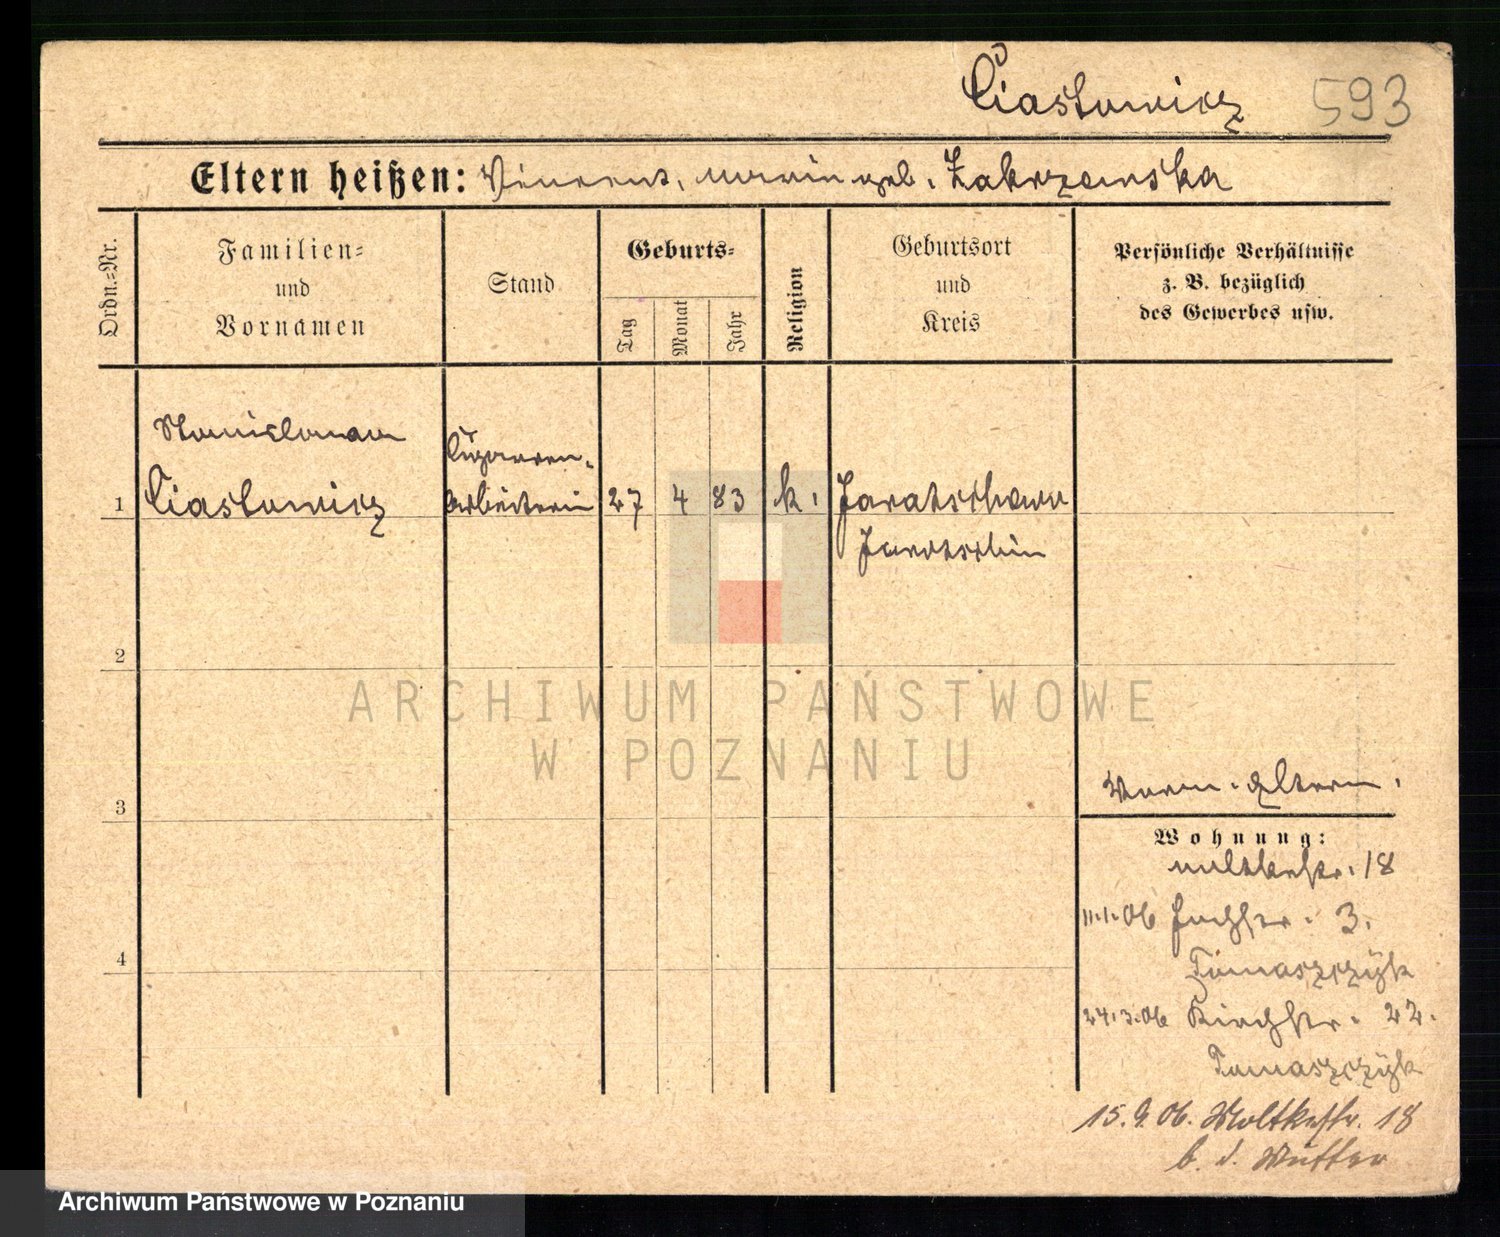 Ciastowicz 593
Eltern heißen: Vincent, Maria geb. Zakrzewska
Ordn.-Nr.
Familien-
und
Vornamen
Stand
Geburts-
Tag
Monat
Jahr
Religion
Geburtsort
und
Kreis
Persönliche Verhältnisse
z. B. bezüglich
des Gewerbes usw.
Stanislawa
Cigarren-
1 Ciastowicz arbeiterin 27 4 83 k.
Jarotschin
2
3
Eltern.
Wohnung:
Moltkestr. 18
11.1.06 3.
4
Tomaszczyk
24.3.06 Kirchstr. 22.
Tomaszczyk
15.9.06. Moltkestr. 18
b. d. Mutter
ARCHIWUM PAŃSTWOWE
W POZNANIU
Archiwum Państwowe w Poznaniu